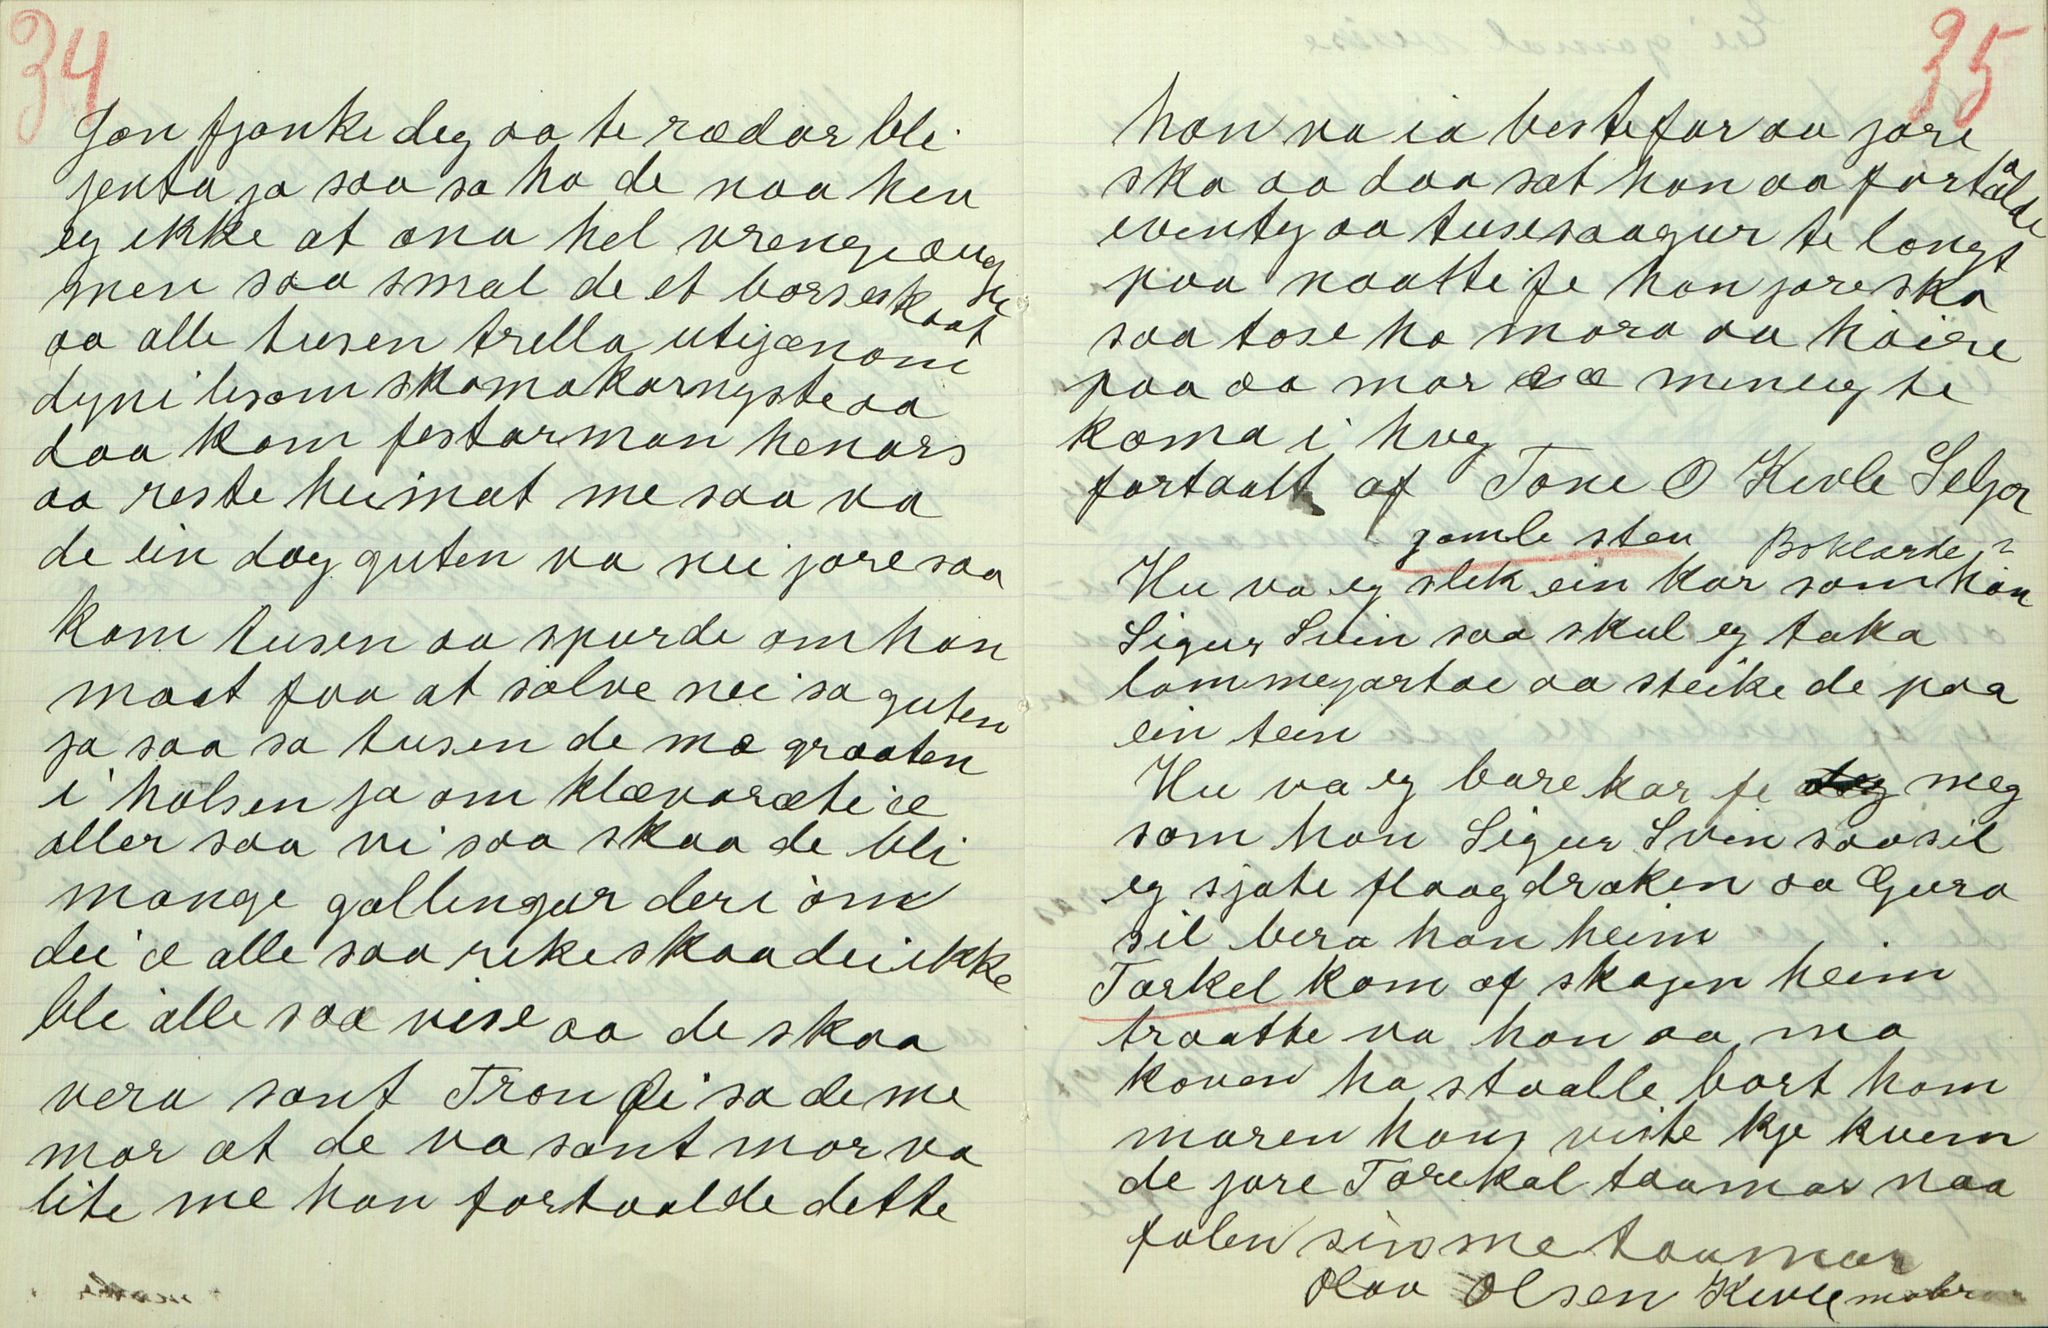 34
Jon fjonke deg aa te rædar bli
jenta ja saa sa ho de naa hen
eg ikke at ana hel vrengeaugu
men saa smal de et børseskaat
aa alle tusen trella utigjænom
dyni lesom skomakarnyste aa
daa kom festarman henars
aa reste heimat me saa va
de ein dag guten va nei jore saa
kom tusen aa spurde om han
maat faa at sølve nei sa guten
ja saa sa tusen de mæ graaten
i halsen ja om klævaræti æ
aller saa vi saa skaa de bli
mange gallingar deri om
dei æ alle saa rike skaa dei ikke
bli alle saa vise aa de skaa
vera sant Tron fei sa de me
mor at de va sant mor va
lite me han fortaalde dette
35
han va ia bestefar aa jore
sko aa daa sat han aa fortålde
eventy aa tusesaagur te langt
paa naatte fe han jore sko
saa tose ho mora aa høire
paa aa mor æ æ mineug te
koma i hug
fortaalt af Tone O Kivle Seljor
gamle sten Boklarde?
Hu va eg slik ein kar som han
Sigur Svin saa skul eg taka
lommegortae aa steike de paa
ein tein
Hu va eg bare kar fe meg
som han Sigur Svin saa sil
eg sjote flaagdraken aa Guro
sil bera han heim
Torkel kom af skogen heim
traatte va han aa mo
konen ha staalle bort hom
maren hang viste kje kvem
de jore Torekal taamar naa
folen sin me taamar
Olav Olsen Kivle